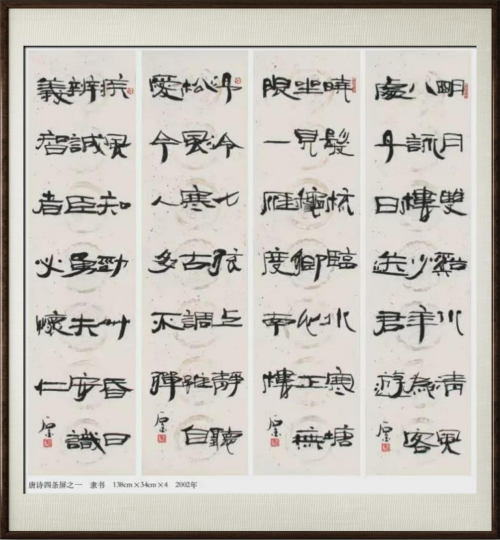 明月雙谿水清風
八詠樓少年為客
處今日送君遊
曉髮梳臨水寒塘
坐見秋鄉心正無
限一雁度南樓
泠泠七弦上靜聽
松風寒古調雖自
愛今人多不彈
疾風知勁艸昏日
辨誠臣勇夫安識
義智者必懷仁
唐诗四条屏之一 隶书 138cm×34cm×4 2002年